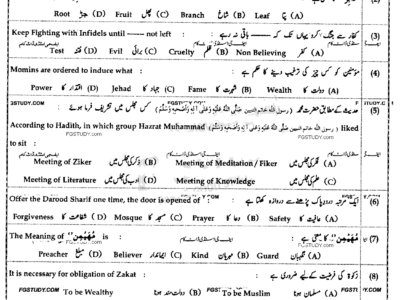 Root جڑ (D) Fruit پھل (C) Branch شاخ (B) Leaf پتا (A)
(3) کفار سے جنگ کرو یہاں تک کہ ——— باقی نہ رہے :
Keep Fighting with Infidels until —— not left :
Test فتنہ (D) Evil برائی (C) Cruelty ظلم (B) Non Believing کفر (A)
(4) مؤمنین کو کس چیز کی ترغیب دینے کا حکم ہے :
Momins are ordered to induce what :
Power اقتدار کا (D) Jehad جہاد کا (C) Fame شہرت کا (B) Wealth دولت کا (A)
FGSTUDY.COM
(5) حدیث کے مطابق حضرت محمد (رسول اللہ خاتم النبیین صلی اللہ علیہ وعلی آلہ واصحابہ وسلم) کس مجلس میں تشریف فرما ہوئے :
According to Hadith, in which group Hazrat Muhammad (رسول اللہ خاتم النبیین صلی اللہ علیہ وعلی آلہ واصحابہ وسلم) liked
to sit : FGSTUDY.COM
Meeting of Ziker ذکر کی مجلس میں (B) Meeting of Meditation / Fiker فکر کی مجلس میں (A)
Meeting of Literature ادب کی مجلس میں (D) Meeting of Knowledge علم کی مجلس میں (C)
(6) ایک مرتبہ درود پاک پڑھنے سے دروازہ کھلتا ہے :
Offer the Darood Sharif one time, the door is opened of :
Forgiveness شفاعت کا (D) Mosque مسجد کا (C) Prayer دعا کا (B) Safety عافیت کا (A)
(7) "مُهَيْمِن" کا معنی ہے :
The Meaning of "مُهَيْمِن" is :
Preacher مبلغ (D) Believer ایماندار (C) Kind مہربان (B) Guard نگہبان (A)
(8) زکوٰۃ کی فرضیت کے لیے ضروری ہے :
It is necessary for obligation of Zakat :
FGSTUDY.COM
To be Wealthy دولت مند ہونا (B) To be Muslim مسلمان ہونا (A)